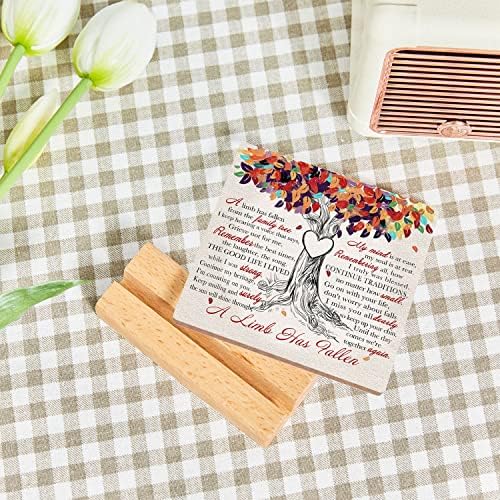 A limb has fallen
from the family tree
I keep hearing a voice that says,
Grieve not for me.
Remember the best times,
the laughter, the song
THE GOOD LIFE I LIVED
while I was strong.
Continue my heritage,
I'm counting on you
Keep smiling and surely
the sun will shine through.
My mind is at ease,
my soul is at rest.
Remembering all, how
I truly was blessed.
CONTINUE TRADITIONS,
no matter how small.
Go on with your life,
don't worry about falls
I miss you all dearly
so keep up your chin,
Until the day
comes we're
together again.
A Limb Has Fallen